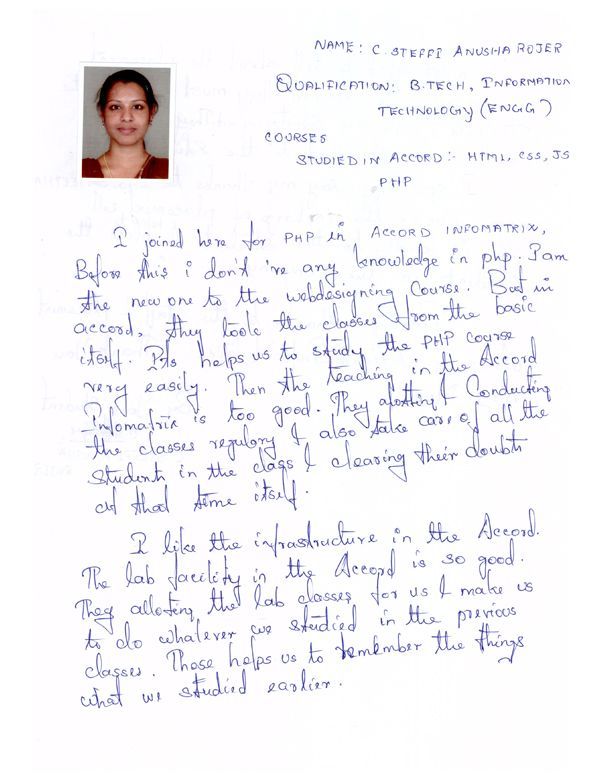 NAME: C. STEFFI ANUSHA ROJER
QUALIFICATION: B.TECH, INFORMATION
TECHNOLOGY (ENGG)
COURSES
STUDIED IN ACCORD:- HTML, CSS, JS
PHP
I joined here for PHP in ACCORD INFOMATRIX,
Before this i don't 've any knowledge in php. I am
the new one to the webdesigning Course. But in
accord, they took the classes from the basic
itself. Its helps us to study the PHP course
very easily. Then the teaching in the Accord
Infomatrix is too good. They alotting & Conducting
the classes regulary & also take care of all the
students in the class & clearing their doubts
at that time itself.
I like the infrastructure in the Accord.
The lab facility in the Accord is so good.
They alloting the lab classes for us & make us
to do whatever we studied in the previous
classes. Those helps us to remember the things
what we studied earlier.